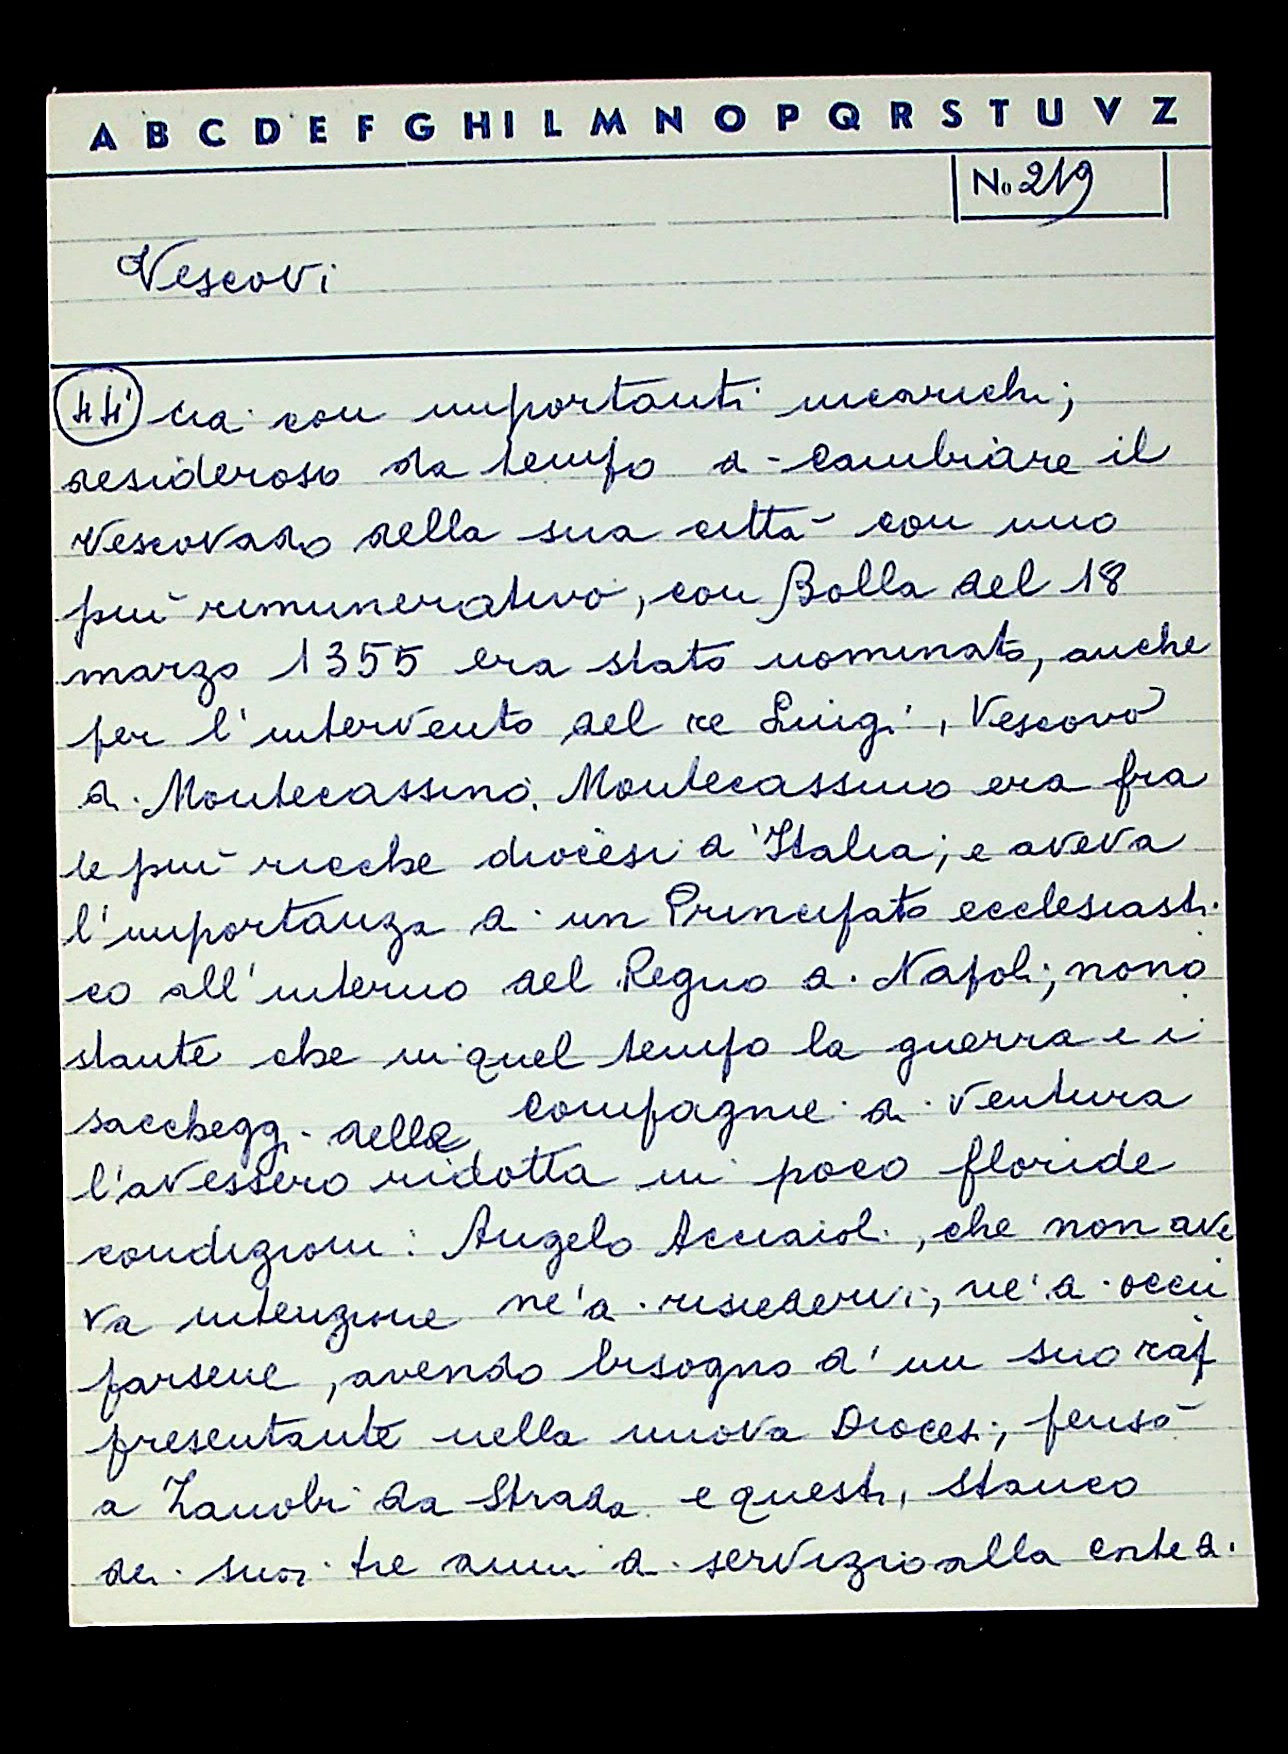 A B C D E F G H I L M N O P Q R S T U V Z
No 219
Vescovi
44 cia con importanti incarichi;
desideroso da tempo di cambiare il
Vescovado della sua città con uno
più remunerativo, con Bolla del 18
marzo 1355 era stato nominato, anche
per l'intervento del re Luigi, Vescovo
di Montecassino. Montecassino era fra
le più ricche diocesi d'Italia; e aveva
l'importanza di un Principato ecclesiasti
co all'interno del Regno di Napoli; nono
stante che in quel tempo la guerra e i
saccheggi delle Compagnie di ventura
l'avessero ridotta in poco floride
condizioni: Angelo Acciaioli, che non ave
va intenzione né di risiedervi, né di occu
parsene, avendo bisogno d'un suo rap
presentante nella nuova Diocesi, pensò
a Zanobi da Strada e questi, stanco
dei suoi tre anni di servizio alla corte di